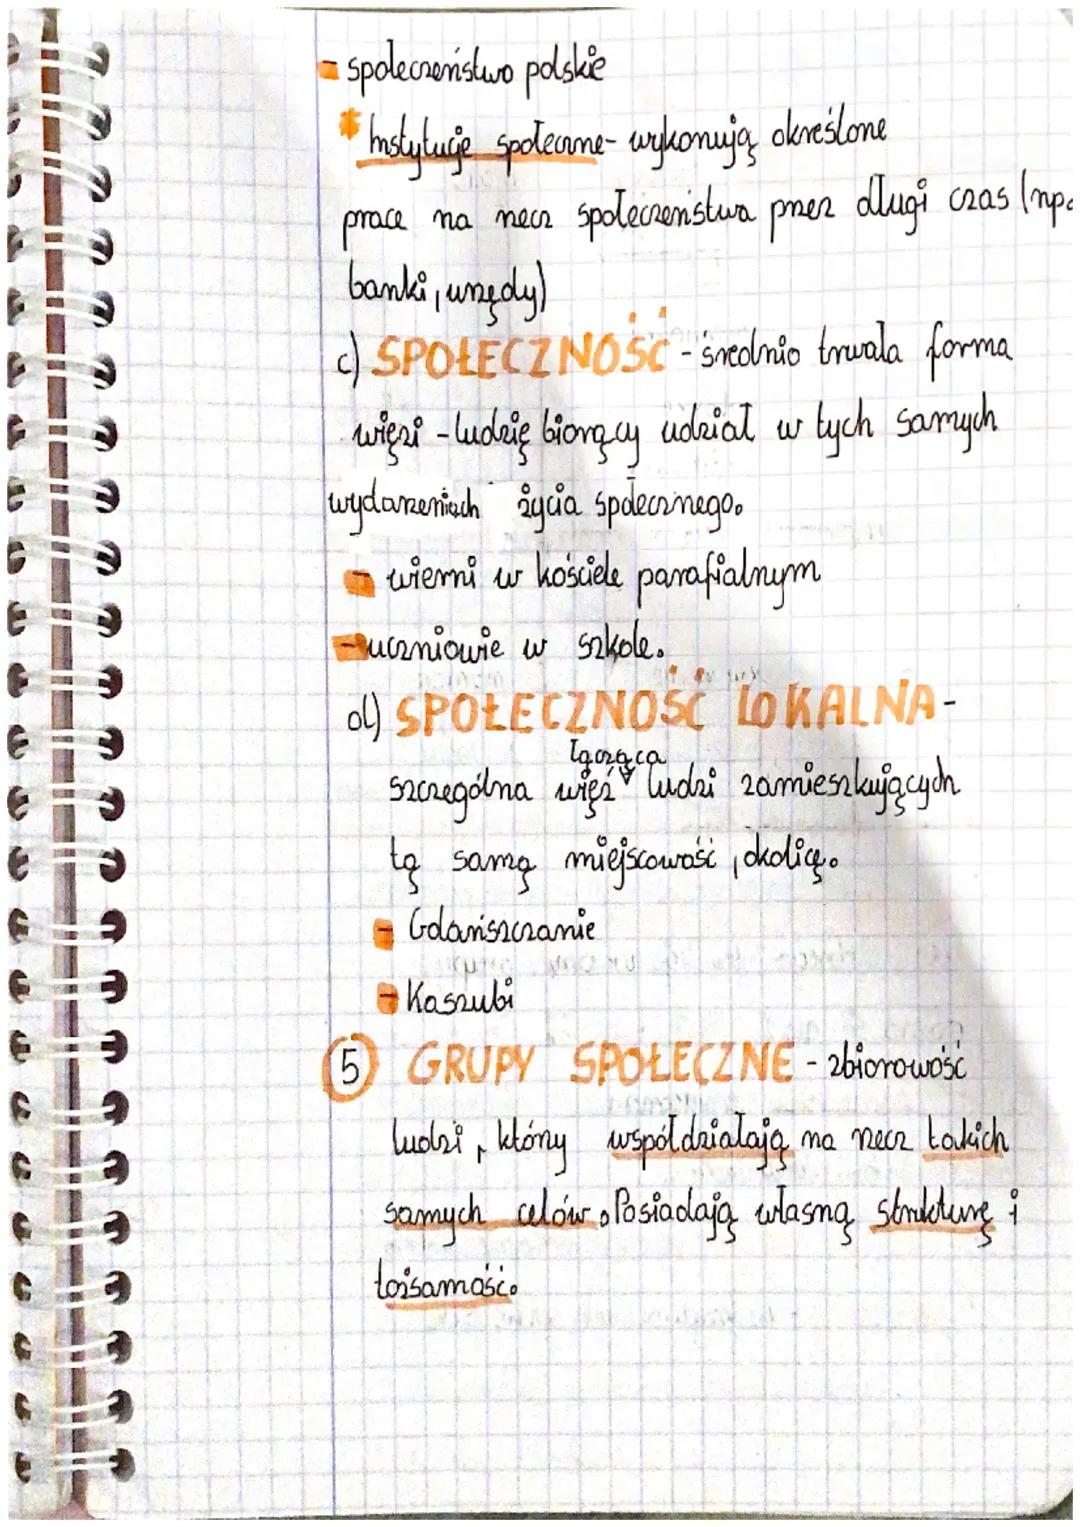 - społeczeństwo polskie
* Instytucje społeczne - wykonują określone
prace na rzecz społeczeństwa przez długi czas (np.
banki, urzędy)
c) SPOŁECZNOŚĆ - średnio trwała forma
więzi - ludzię biorący udział w tych samych
wydarzeniach życia społecznego.
- wierni w kościele parafialnym
- uczniowie w szkole.
d) SPOŁECZNOŚĆ LOKALNA -
łącząca
szczególna więź ludzi zamieszkujących
tę samą miejscowość, okolicę.
- Gdańszczanie
- Kaszubi
5 GRUPY SPOŁECZNE - zbiorowość
ludzi, który współdziałają na rzecz takich
samych celów. Posiadają własną strukturę i
tożsamość.